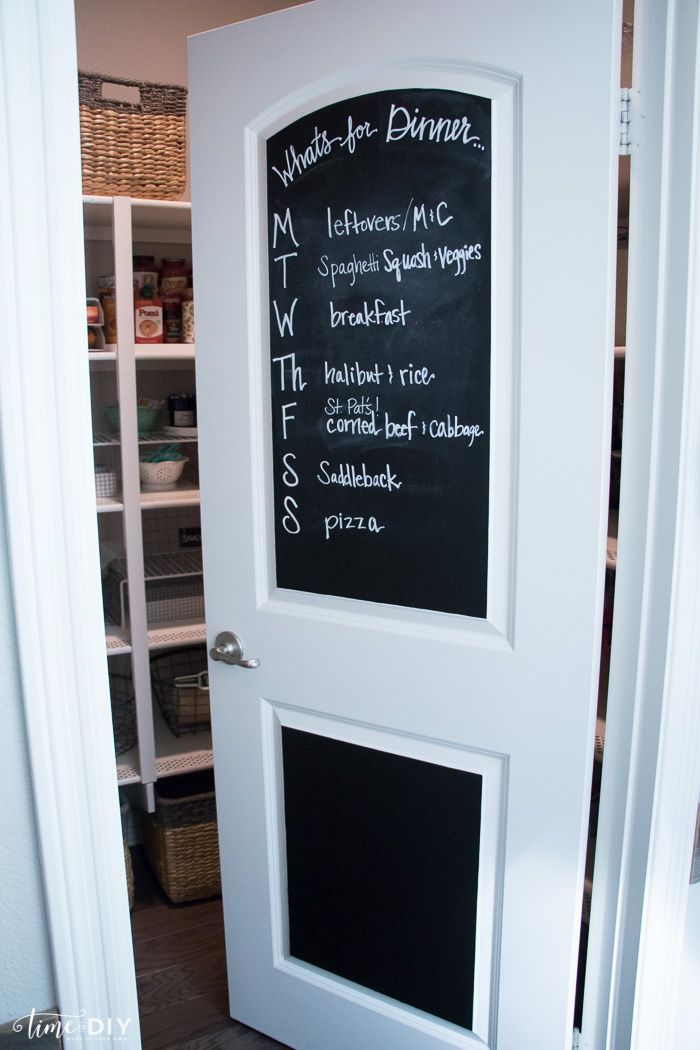 Whats for Dinner...
M leftovers/M&C
T Spaghetti Squash & Veggies
W breakfast
Th halibut & rice
St. Pat's!
F corned beef & cabbage
S Saddleback
S pizza
Pomì
time to DIY
MAKE IT YOUR OWN